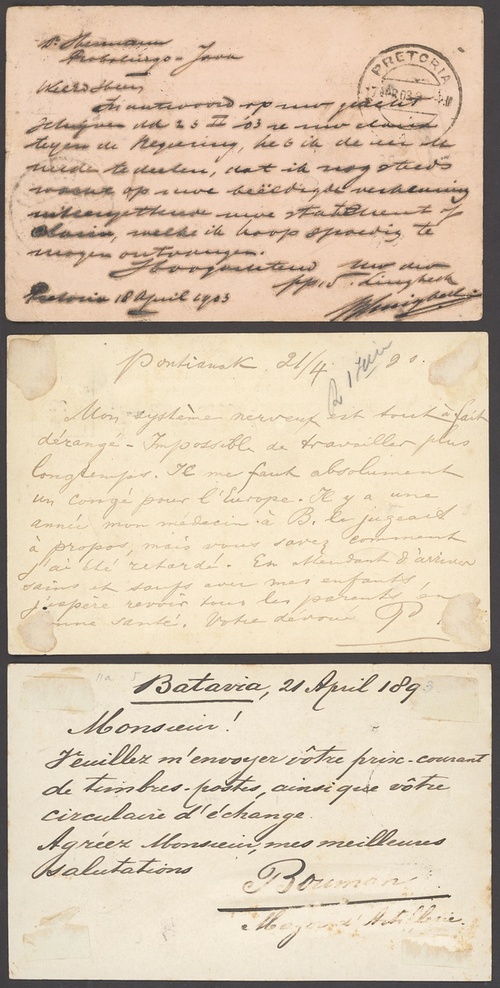 Dr Hermann
Probolingo - Java
PRETORIA
Weled Heer
In antwoord op uw geacht
schrijven dd 23 II '03 re uw claim
tegen de Regeering, heb ik de eer U
mede te deelen, dat ik nog steeds
wacht op uwe beëdigde verklaring
uwe statement of
Claim, welke ik hoop spoedig te
mogen ontvangen.
Hoogachtend Uw dw
pp
Pretoria 18 April 1903
Pontianak 21/4 90.
2 Juin
Mon système nerveux est tout à fait
dérangé - Impossible de travailler plus
longtemps. Il me faut absolument
un congé pour l'Europe. Il y a une
année mon médecin à B. le jugeait
à propos, mais vous savez comment
j'ai été retardé. En attendant d'arriver
sains et saufs avec mes enfants,
j'espère revoir tous les parents en
bonne santé. Votre dévoué
Batavia, 21 April 1893
Monsieur!
Veuillez m'envoyer vôtre prix-courant
de timbres-postes, ainsi que vôtre
circulaire d'échange.
Agréez Monsieur, mes meilleures
salutations
Bouman
Major d'Artillerie.